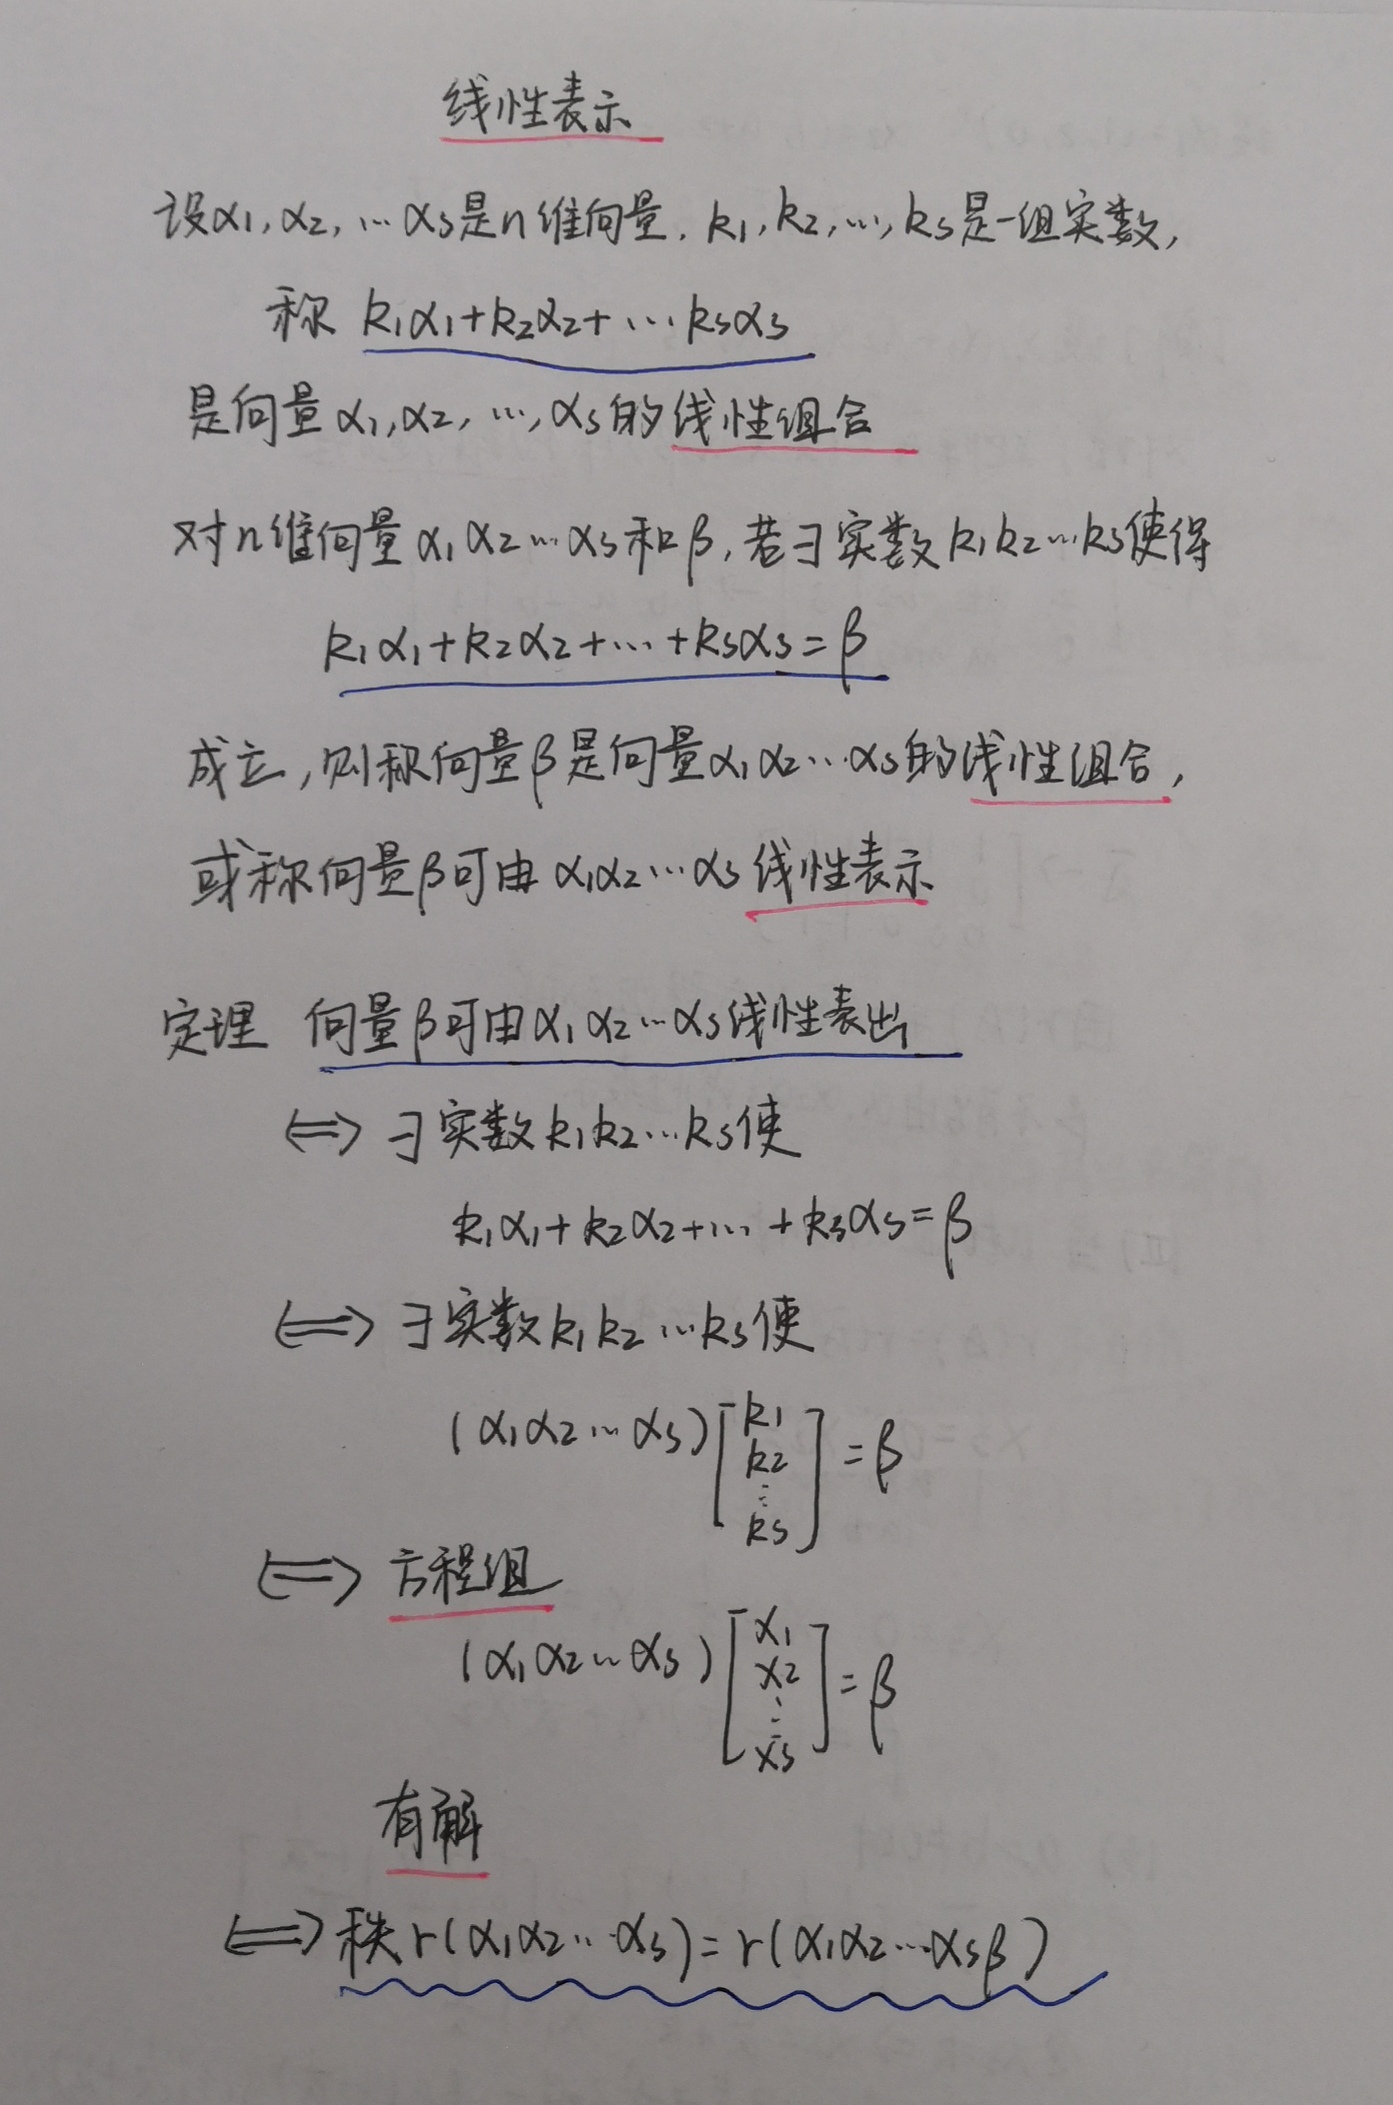 线性表示
设α1,α2,…αs是n维向量,k1,k2,…,ks是一组实数,
称 k1α1+k2α2+…ksαs
是向量α1,α2,…,αs的线性组合
对n维向量α1α2…αs和β,若∃实数k1k2…ks使得
k1α1+k2α2+…+ksαs=β
成立,则称向量β是向量α1α2…αs的线性组合,
或称向量β可由α1α2…αs线性表示
定理 向量β可由α1α2…αs线性表出
⟺ ∃实数k1k2…ks使
k1α1+k2α2+…+ksαs=β
⟺ ∃实数k1k2…ks使
(α1α2…αs)[k1 k2 ⋮ ks]=β
⟺ 方程组
(α1α2…αs)[x1 x2 ⋮ xs]=β
有解
⟺ 秩r(α1α2…αs)=r(α1α2…αsβ)